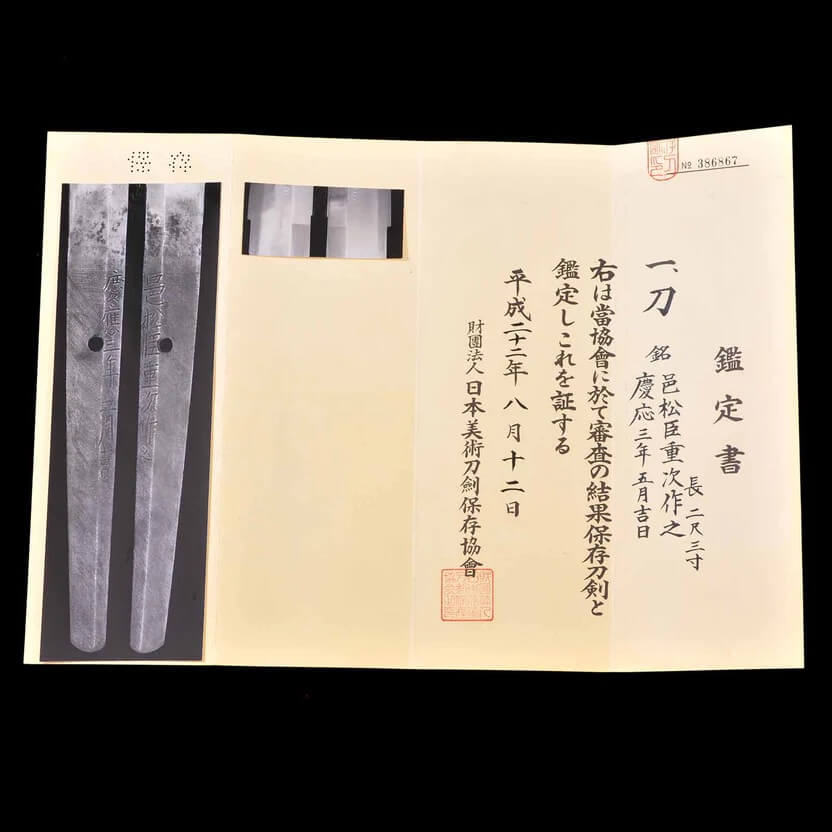 № 386867
鑑定書
一、刀
長 二尺三寸
銘 邑松臣重次作之
慶応三年五月吉日
右は當協會に於て審査の結果保存刀剣と
鑑定しこれを証する
平成二十二年八月十二日
財團法人日本美術刀劍保存協會
保存
邑松臣重次作之
慶應三年五月吉日